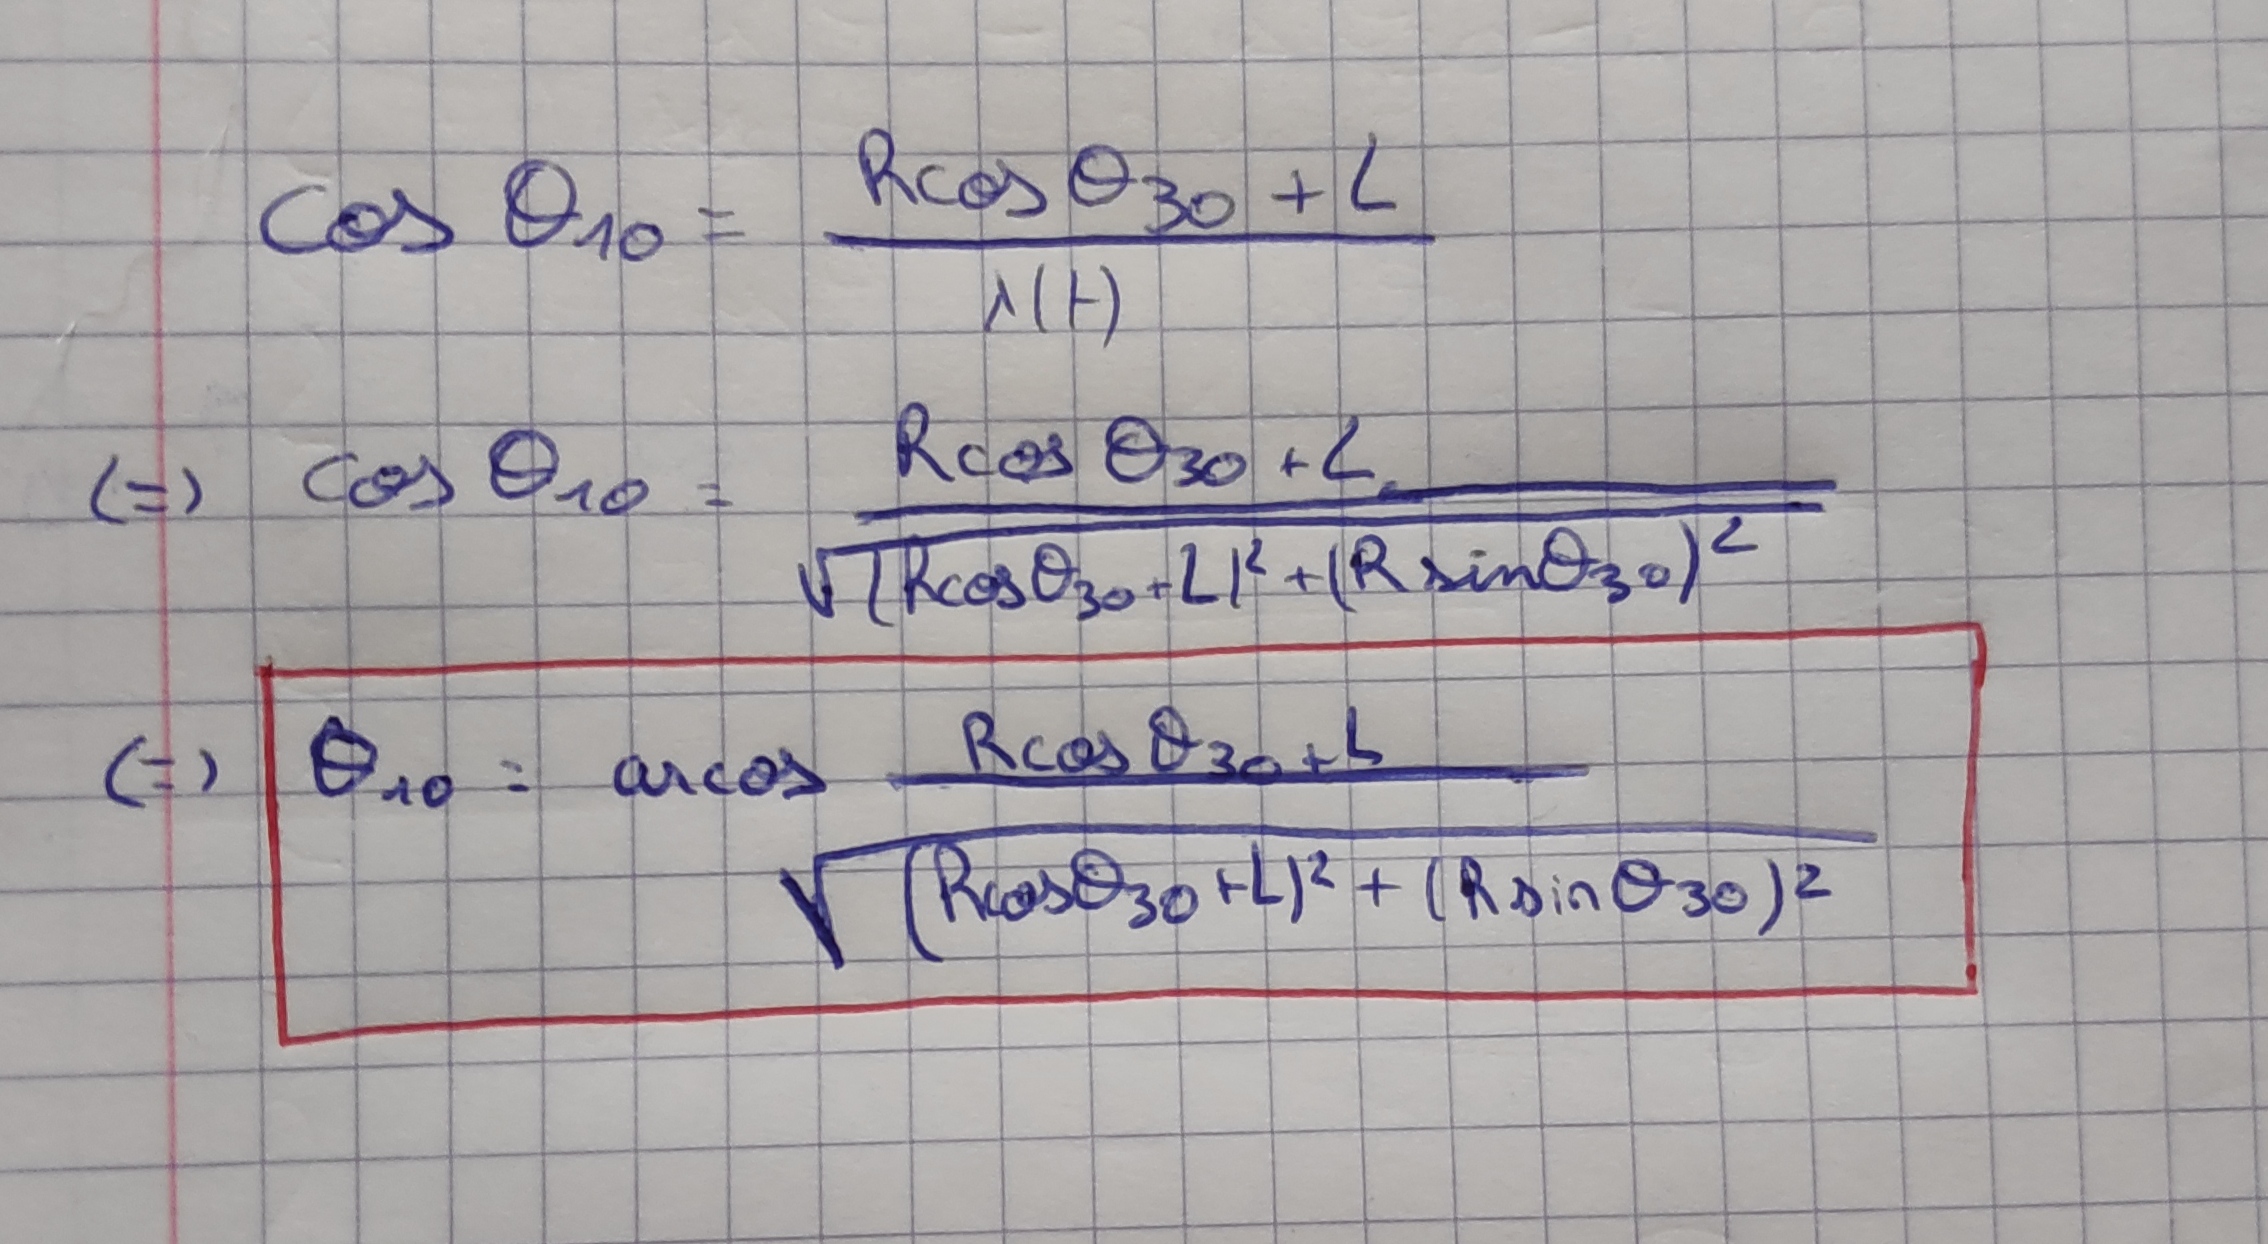 cos θ₁₀ = (Rcos θ₃₀ + L) / λ(t)
(=) cos θ₁₀ = (Rcos θ₃₀ + L) / √((Rcosθ₃₀ + L)² + (R sinθ₃₀)²)
(=) θ₁₀ = arcos (Rcos θ₃₀ + L) / √((Rcosθ₃₀ + L)² + (R sin θ₃₀)²)